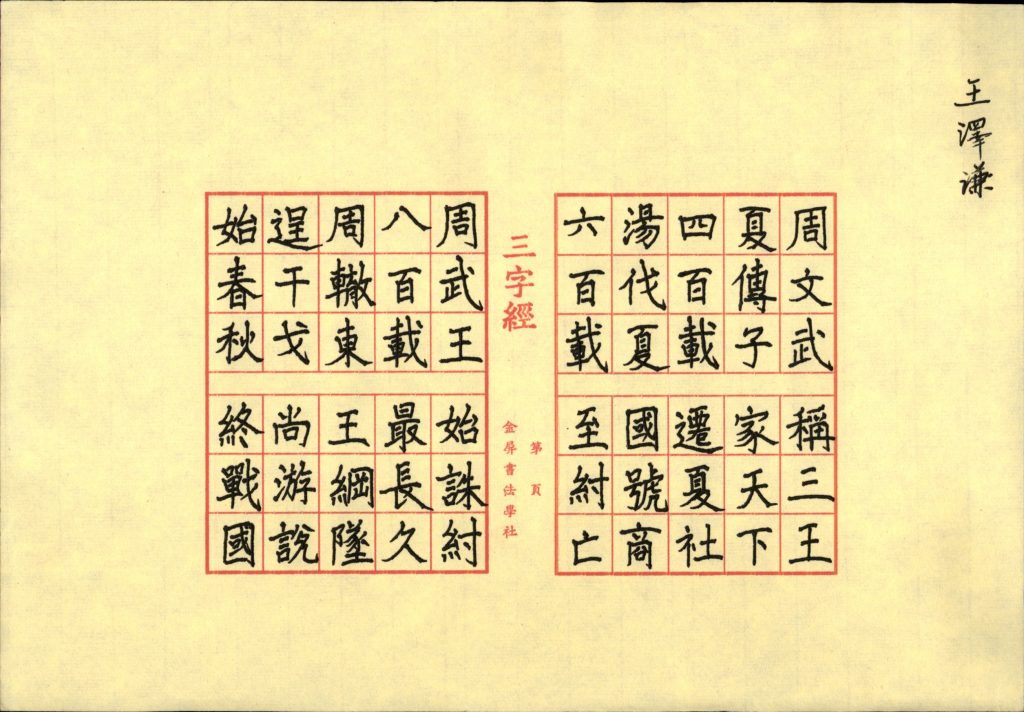 王澤謙
周文武稱三王
夏傳子家天下
四百載遷夏社
湯伐夏國號商
六百載至紂亡
三字經
第頁
金屏書法學社
周武王始誅紂
八百載最長久
周轍東王綱墜
逞干戈尚游說
始春秋終戰國